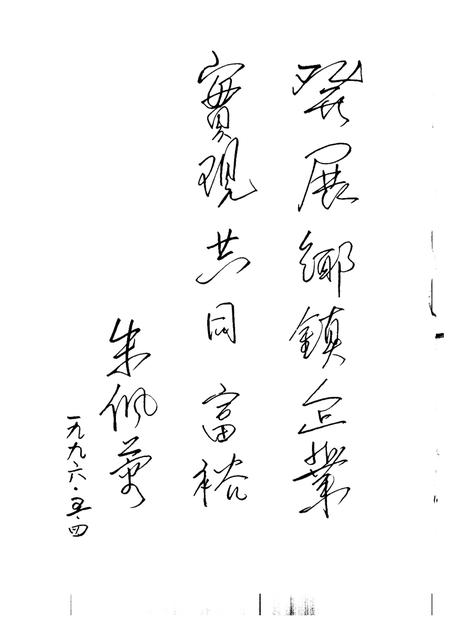 發展鄉鎮企業
實現共同富裕
朱佩
一九九六·五·四